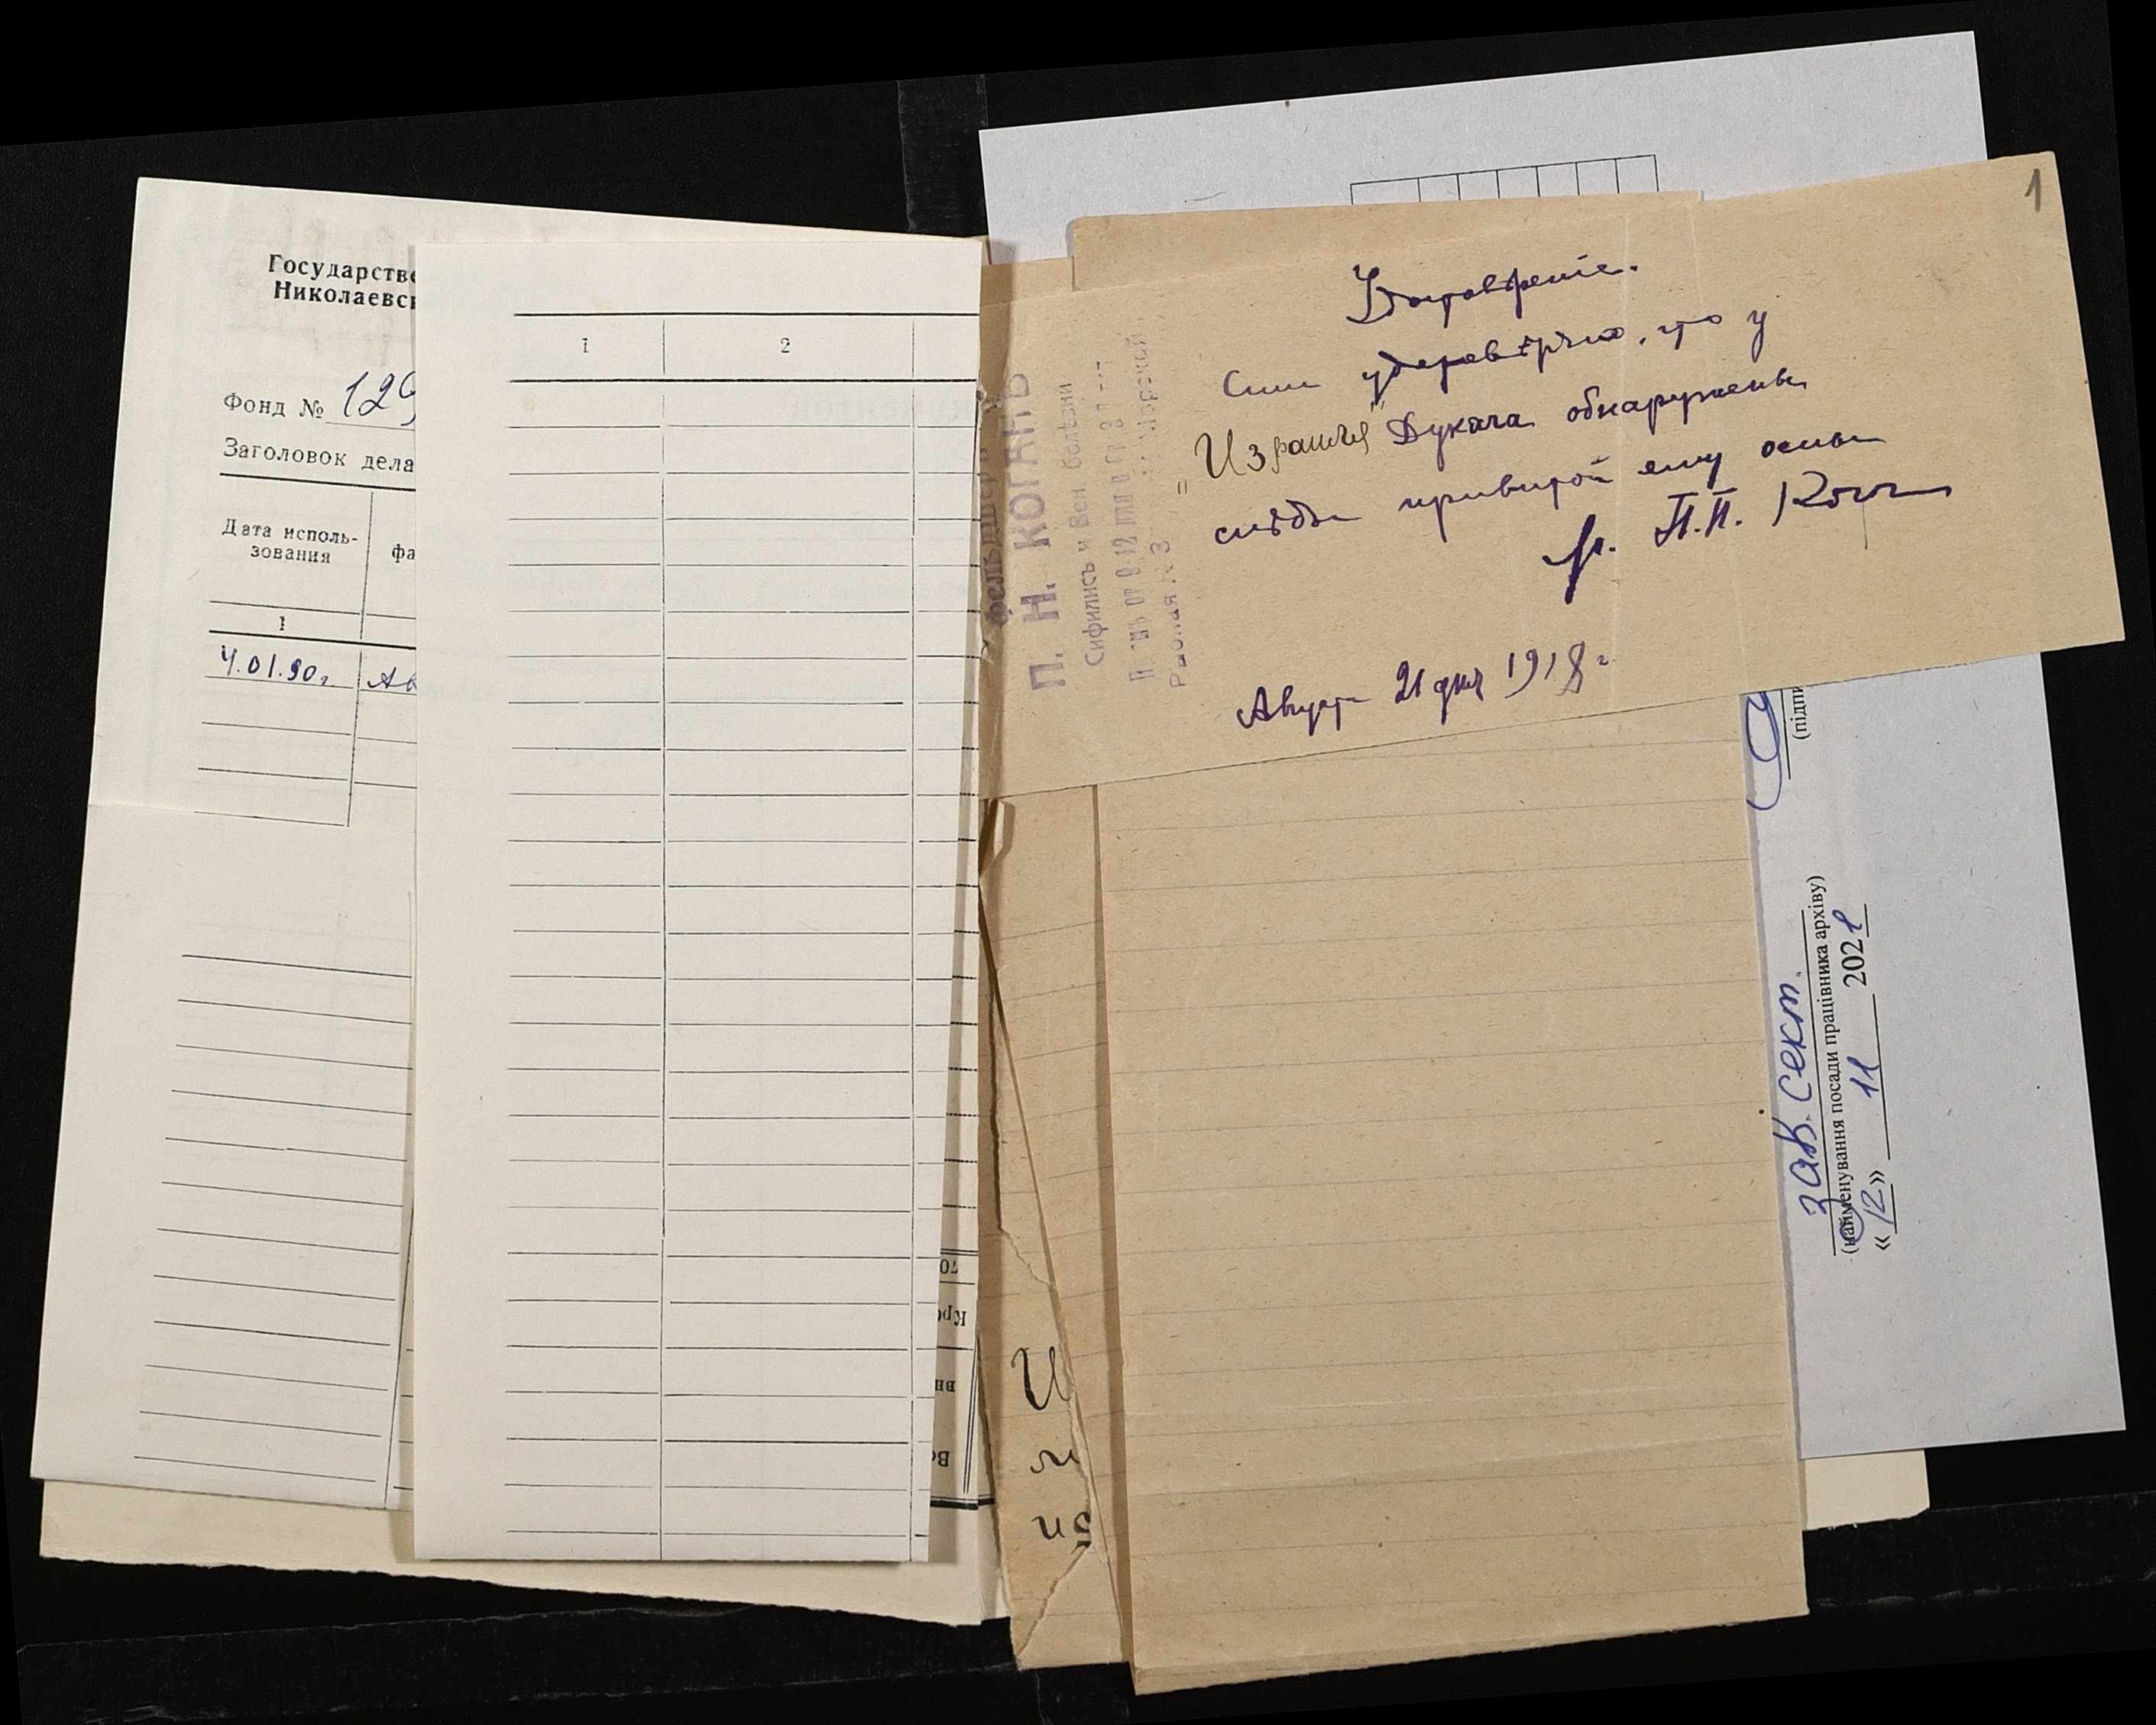 Государстве
Николаевск
Фонд № 129
Заголовок дела
Дата исполь-
зования
фа
1
4.01.90г. Ав
1 2
1
Удостовѣреніе.
Симъ удостовѣряю, что у
Израиля Дукача обнаружены
слѣды привитой ему оспы
П.П. Коган
Августа 21 дня 1918 г.
фельдшеръ
П. Н. КОГАНЪ
Сифилисъ и Вен. болѣзни
от 9 12
И
зав. сект.
(найменування посади працівника архіву)
«12» 11 2021
(підпи